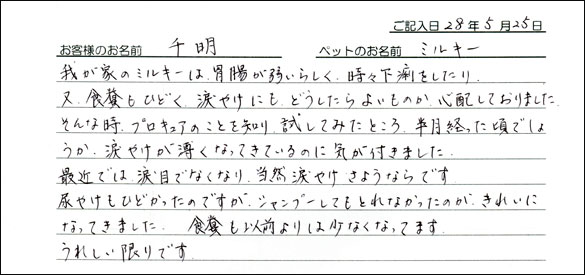 ご記入日28年5月25日
お客様のお名前 千明 ペットのお名前 ミルキー
我が家のミルキーは、胃腸が弱いらしく、時々下痢をしたり、
又、食糞もひどく、涙やけにも、どうしたらよいものか、心配しておりました。
そんな時、プロキュアのことを知り、試してみたところ、半月経った頃でしょ
うか、涙やけが薄くなってきているのに気が付きました。
最近では、涙目でなくなり、当然涙やけさようならです。
尿やけもひどかったのですが、シャンプーしてもとれなかったのが、きれいに
なってきました。 食糞も以前よりは少なくなってます。
うれしい限りです。